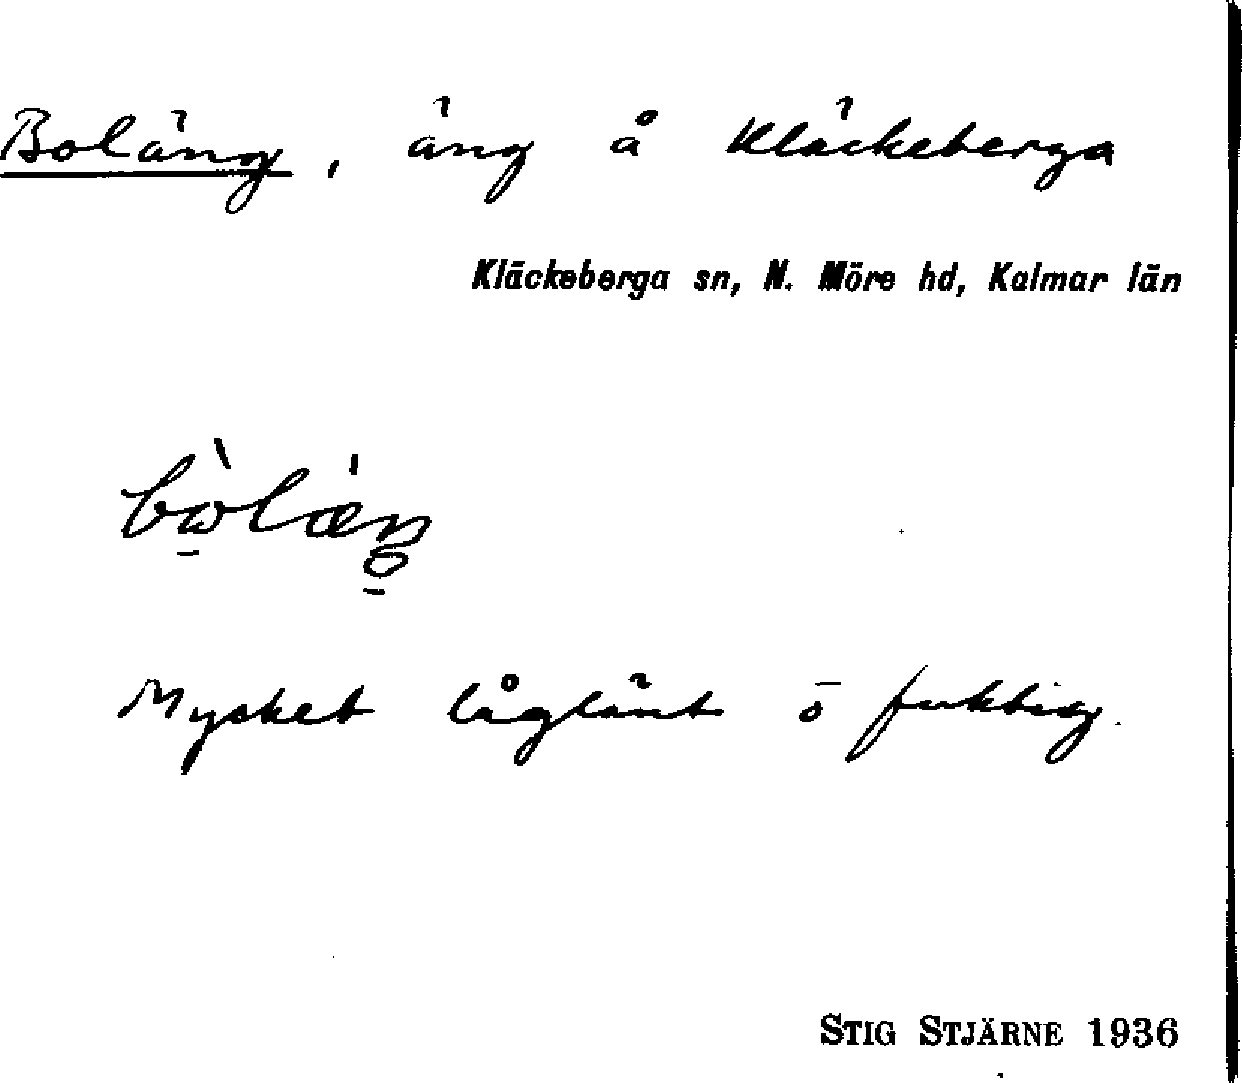 Boläng, äng å Kläckeberga
Kläckeberga sn, N. Möre hd, Kalmar län
bòlæŋ
Mycket låglänt o fuktig.
STIG STJÄRNE 1936